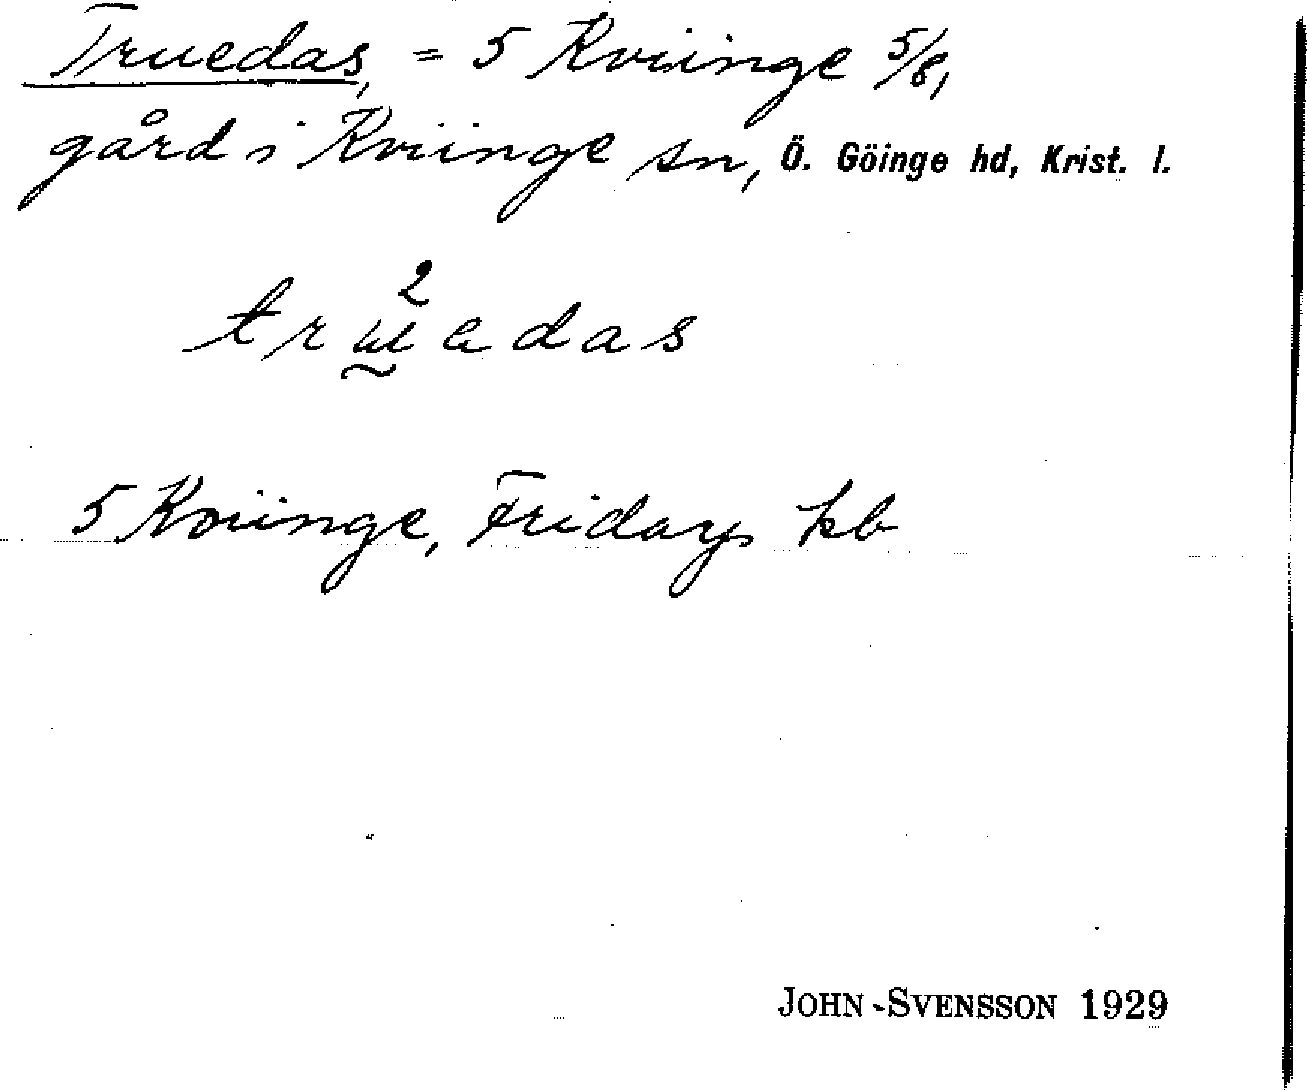 Truedas, = 5 Kviinge 5/8,
gård i Kviinge sn, Ö. Göinge hd, Krist. l.
2
truadas
5 Kviinge, Fridays kb
JOHN-SVENSSON 1929